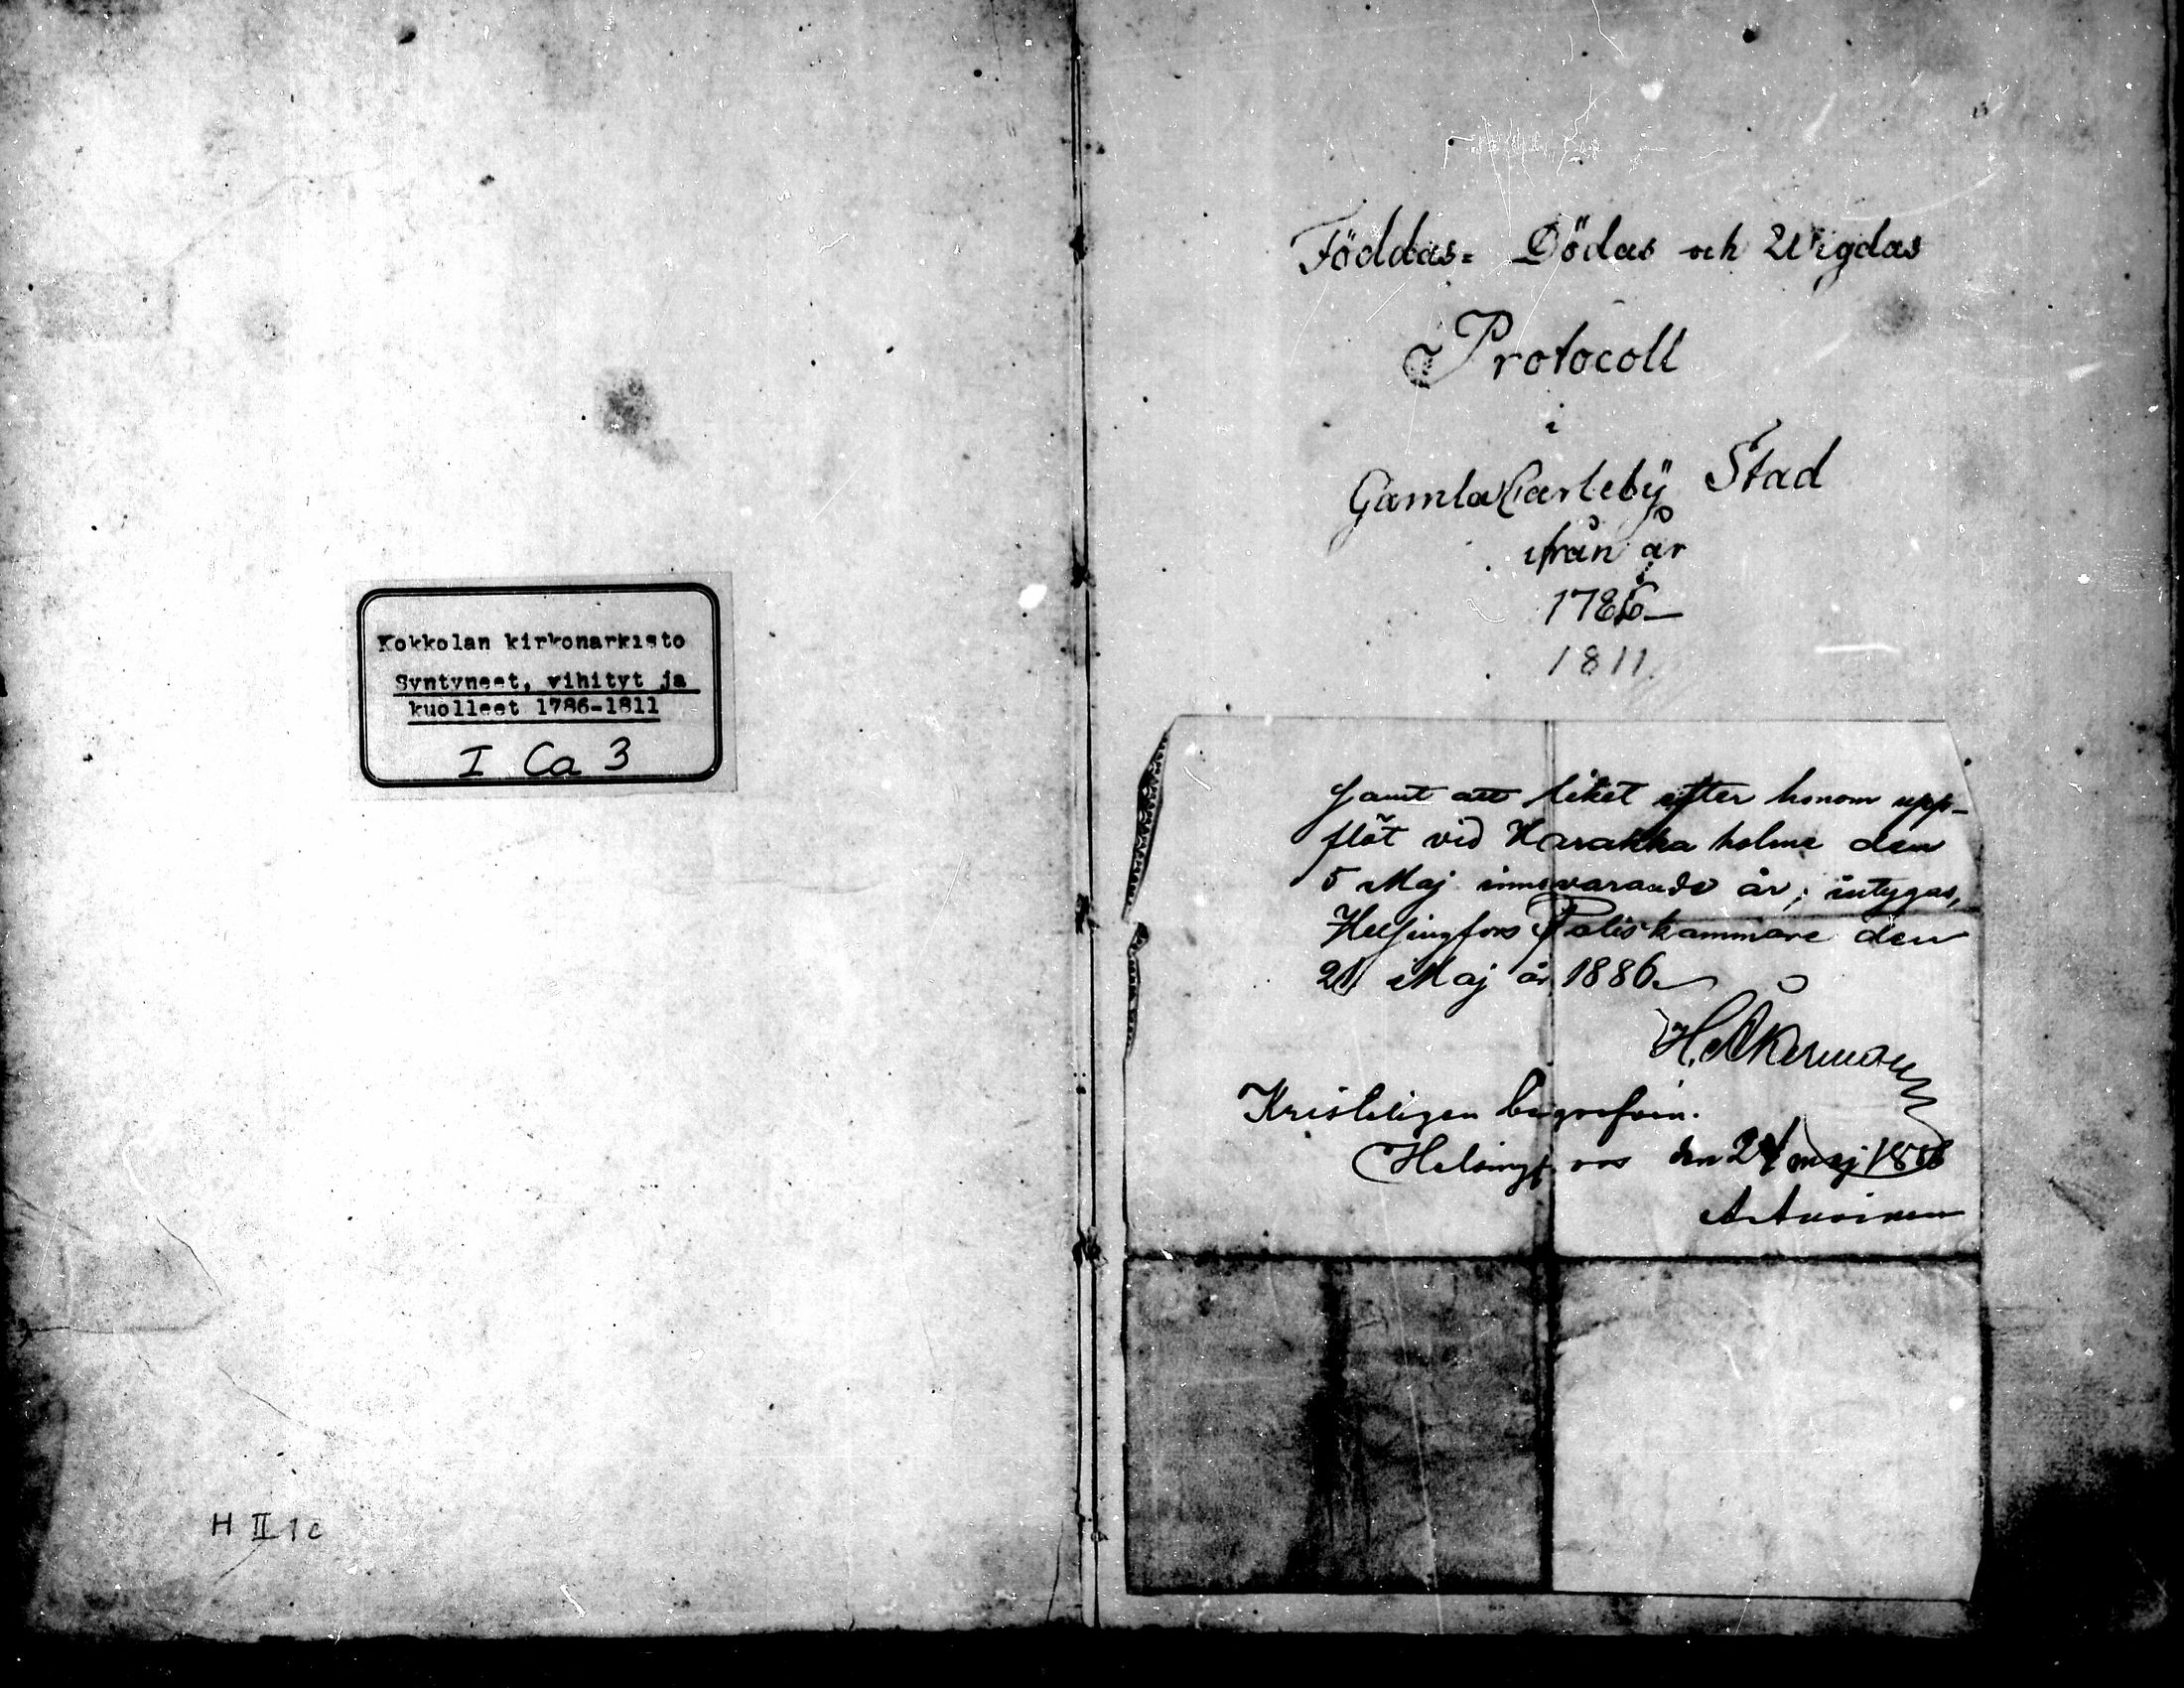 Kokkolan kirkonarkisto
Syntyneet, vihityt ja
kuolleet 1786-1811
I Ca 3
H II 1 c
Föddas- Dödas och Wigdas
Protocoll
i
Gamla Carlebÿ Stad
ifrån år
1786-
1811.
samt att liket efter honom upp-
flöt vid Harakka holme den
5 Maj innevarande år, intygas,
Helsingfors Poliskammare den
21 Maj år 1886.
H. Åkerman
Kristeligen begrafvin.
Helsingfors den 24 maj 1886